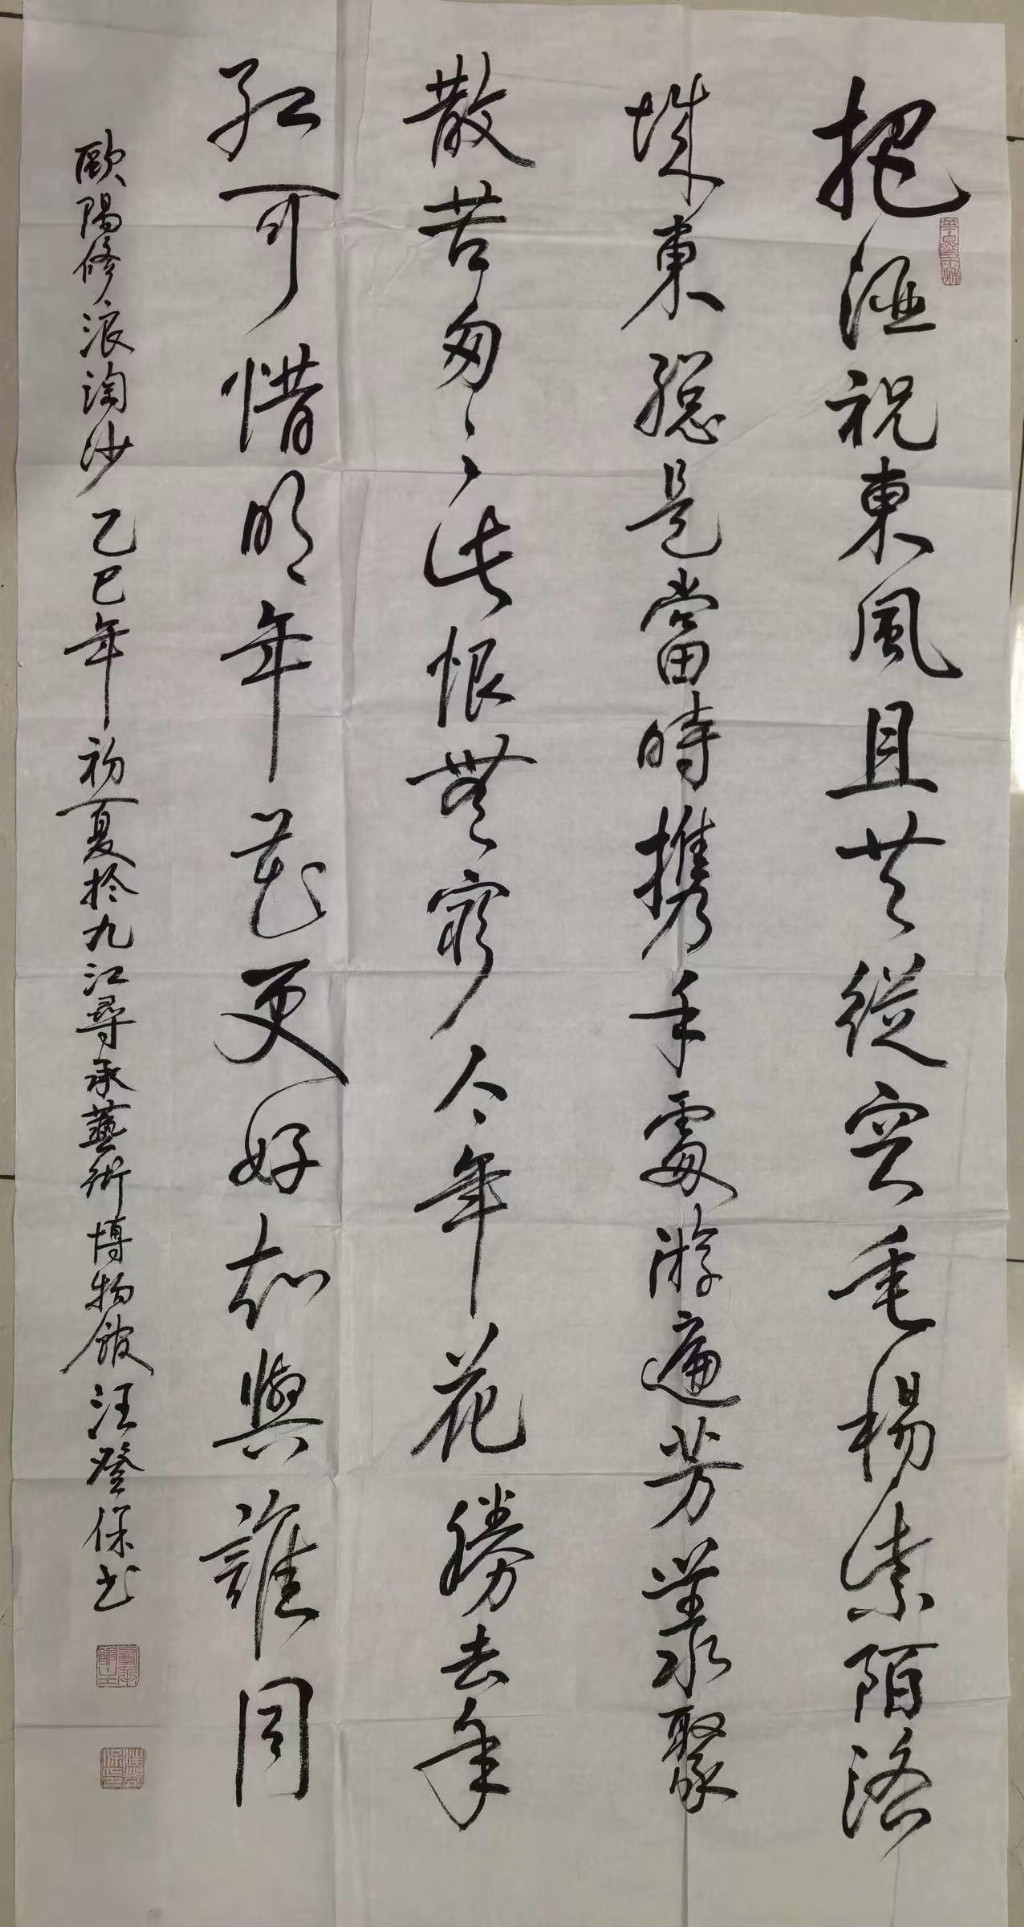 把酒祝東風且共從容垂楊紫陌洛
城東總是當時攜手處游遍芳叢聚
散苦匆匆此恨無窮今年花勝去年
紅可惜明年花更好知與誰同
歐陽修浪淘沙乙巳年初夏於九江尋承藝術博物館汪登保书